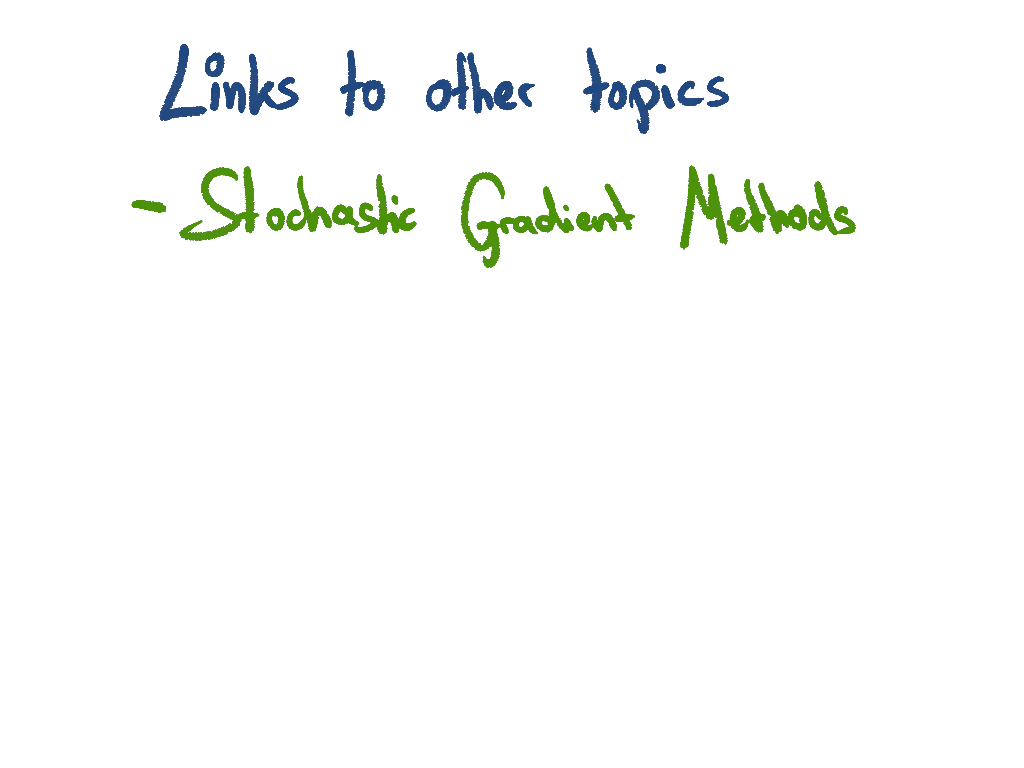 Links to other topics
- Stochastic Gradient Methods